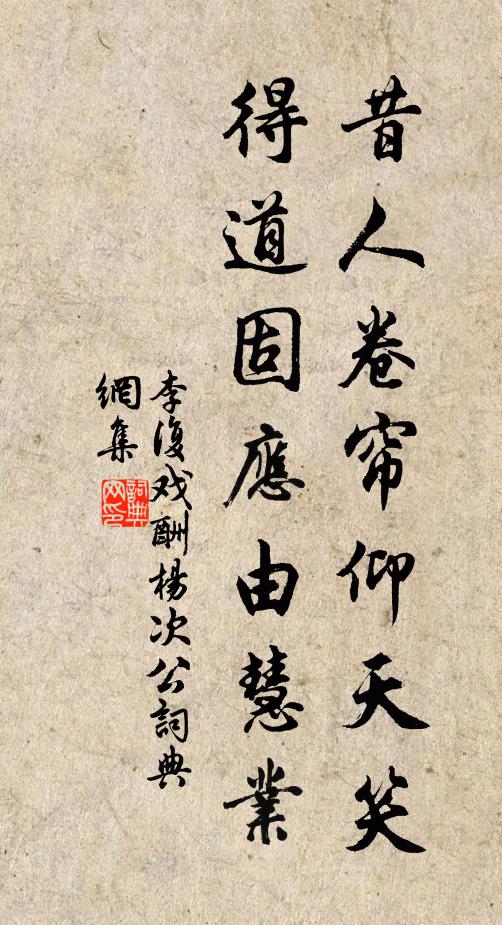 昔人卷帘仰天笑
得道固應由慧業
李復戏酬楊次公詞典
網集
詞典
网印